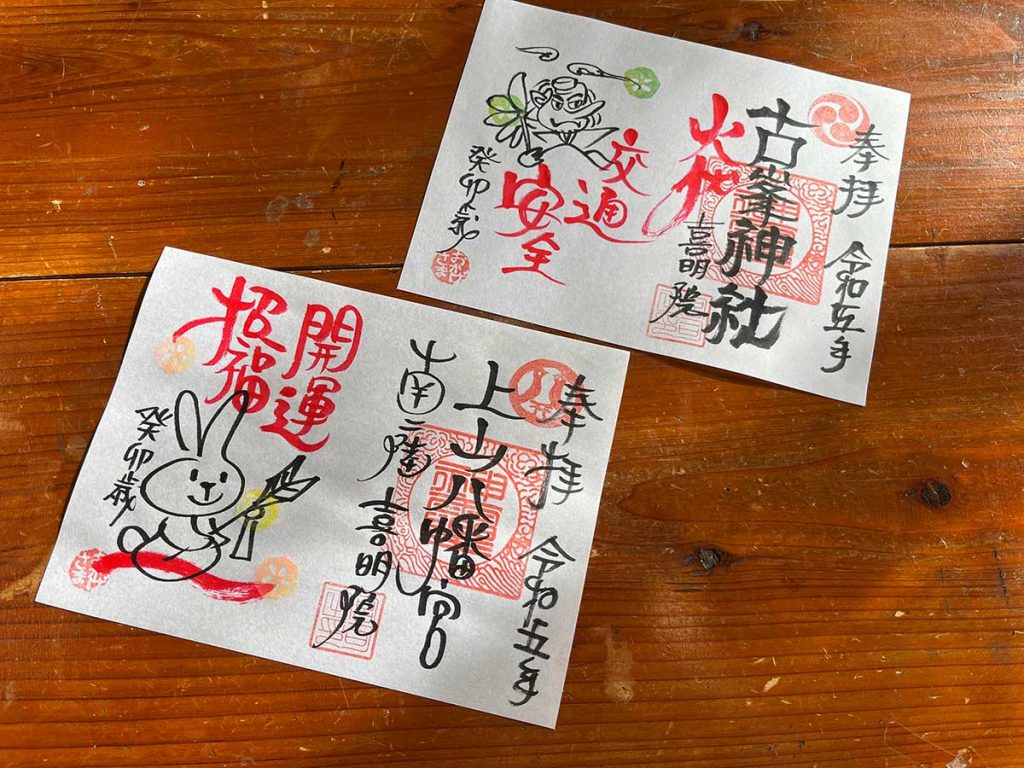 奉拝
令和五年
古峯神社
喜明院
火伏
交通
安全
癸卯歳
おかげさま
奉拝
令和五年
上山八幡宮
喜明院
開運
招福
癸卯歳